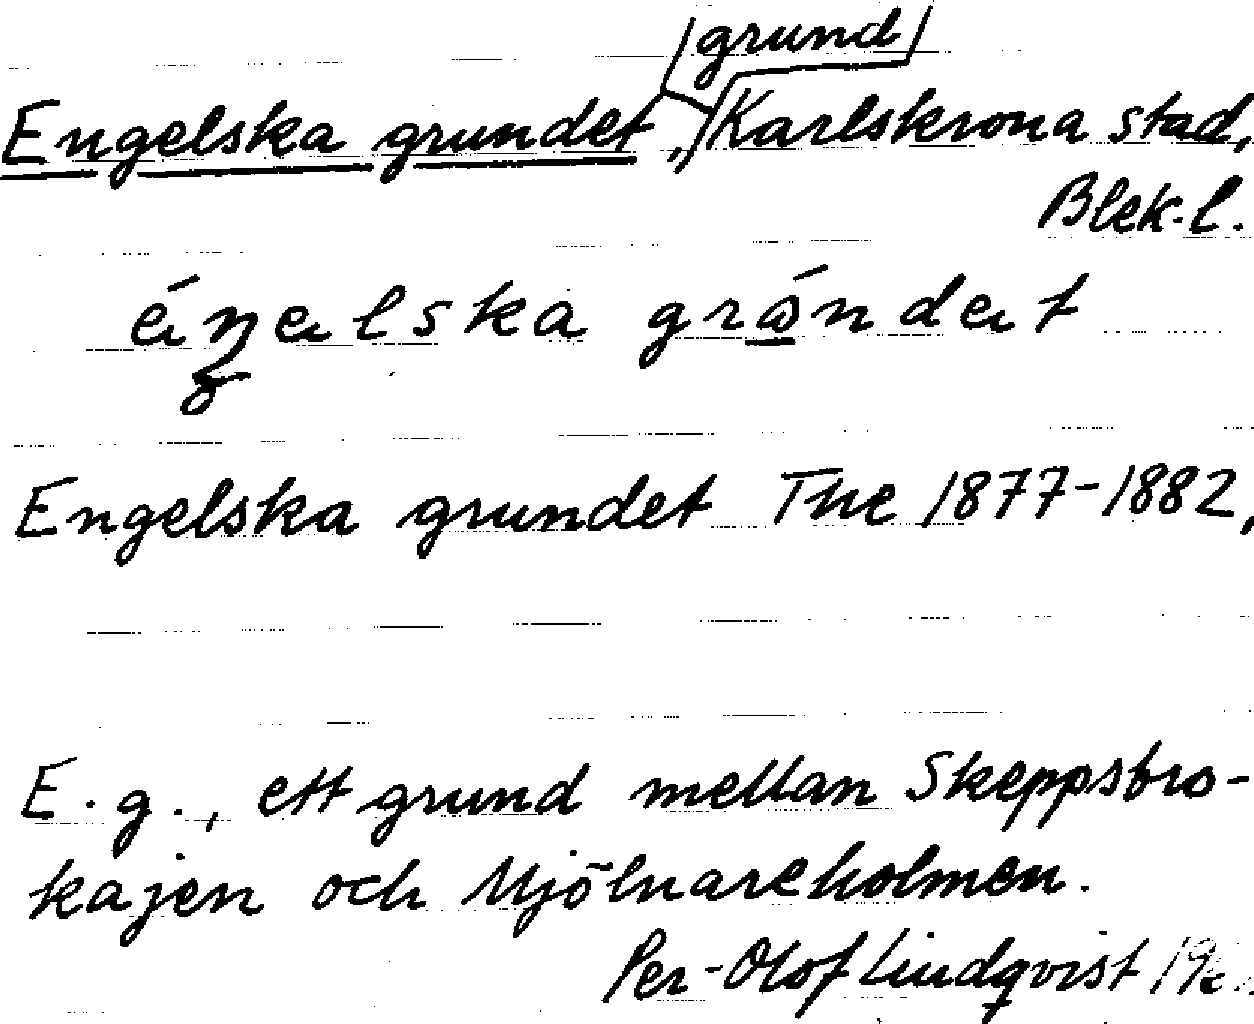 grund
Engelska grundet, Karlskrona stad,
Blek. l.
éŋelska gröndet
Engelska grundet The 1877-1882,
E. g., ett grund mellan Skeppsbro-
kajen och Mjölnareholmen.
Per-Olof Lindqvist